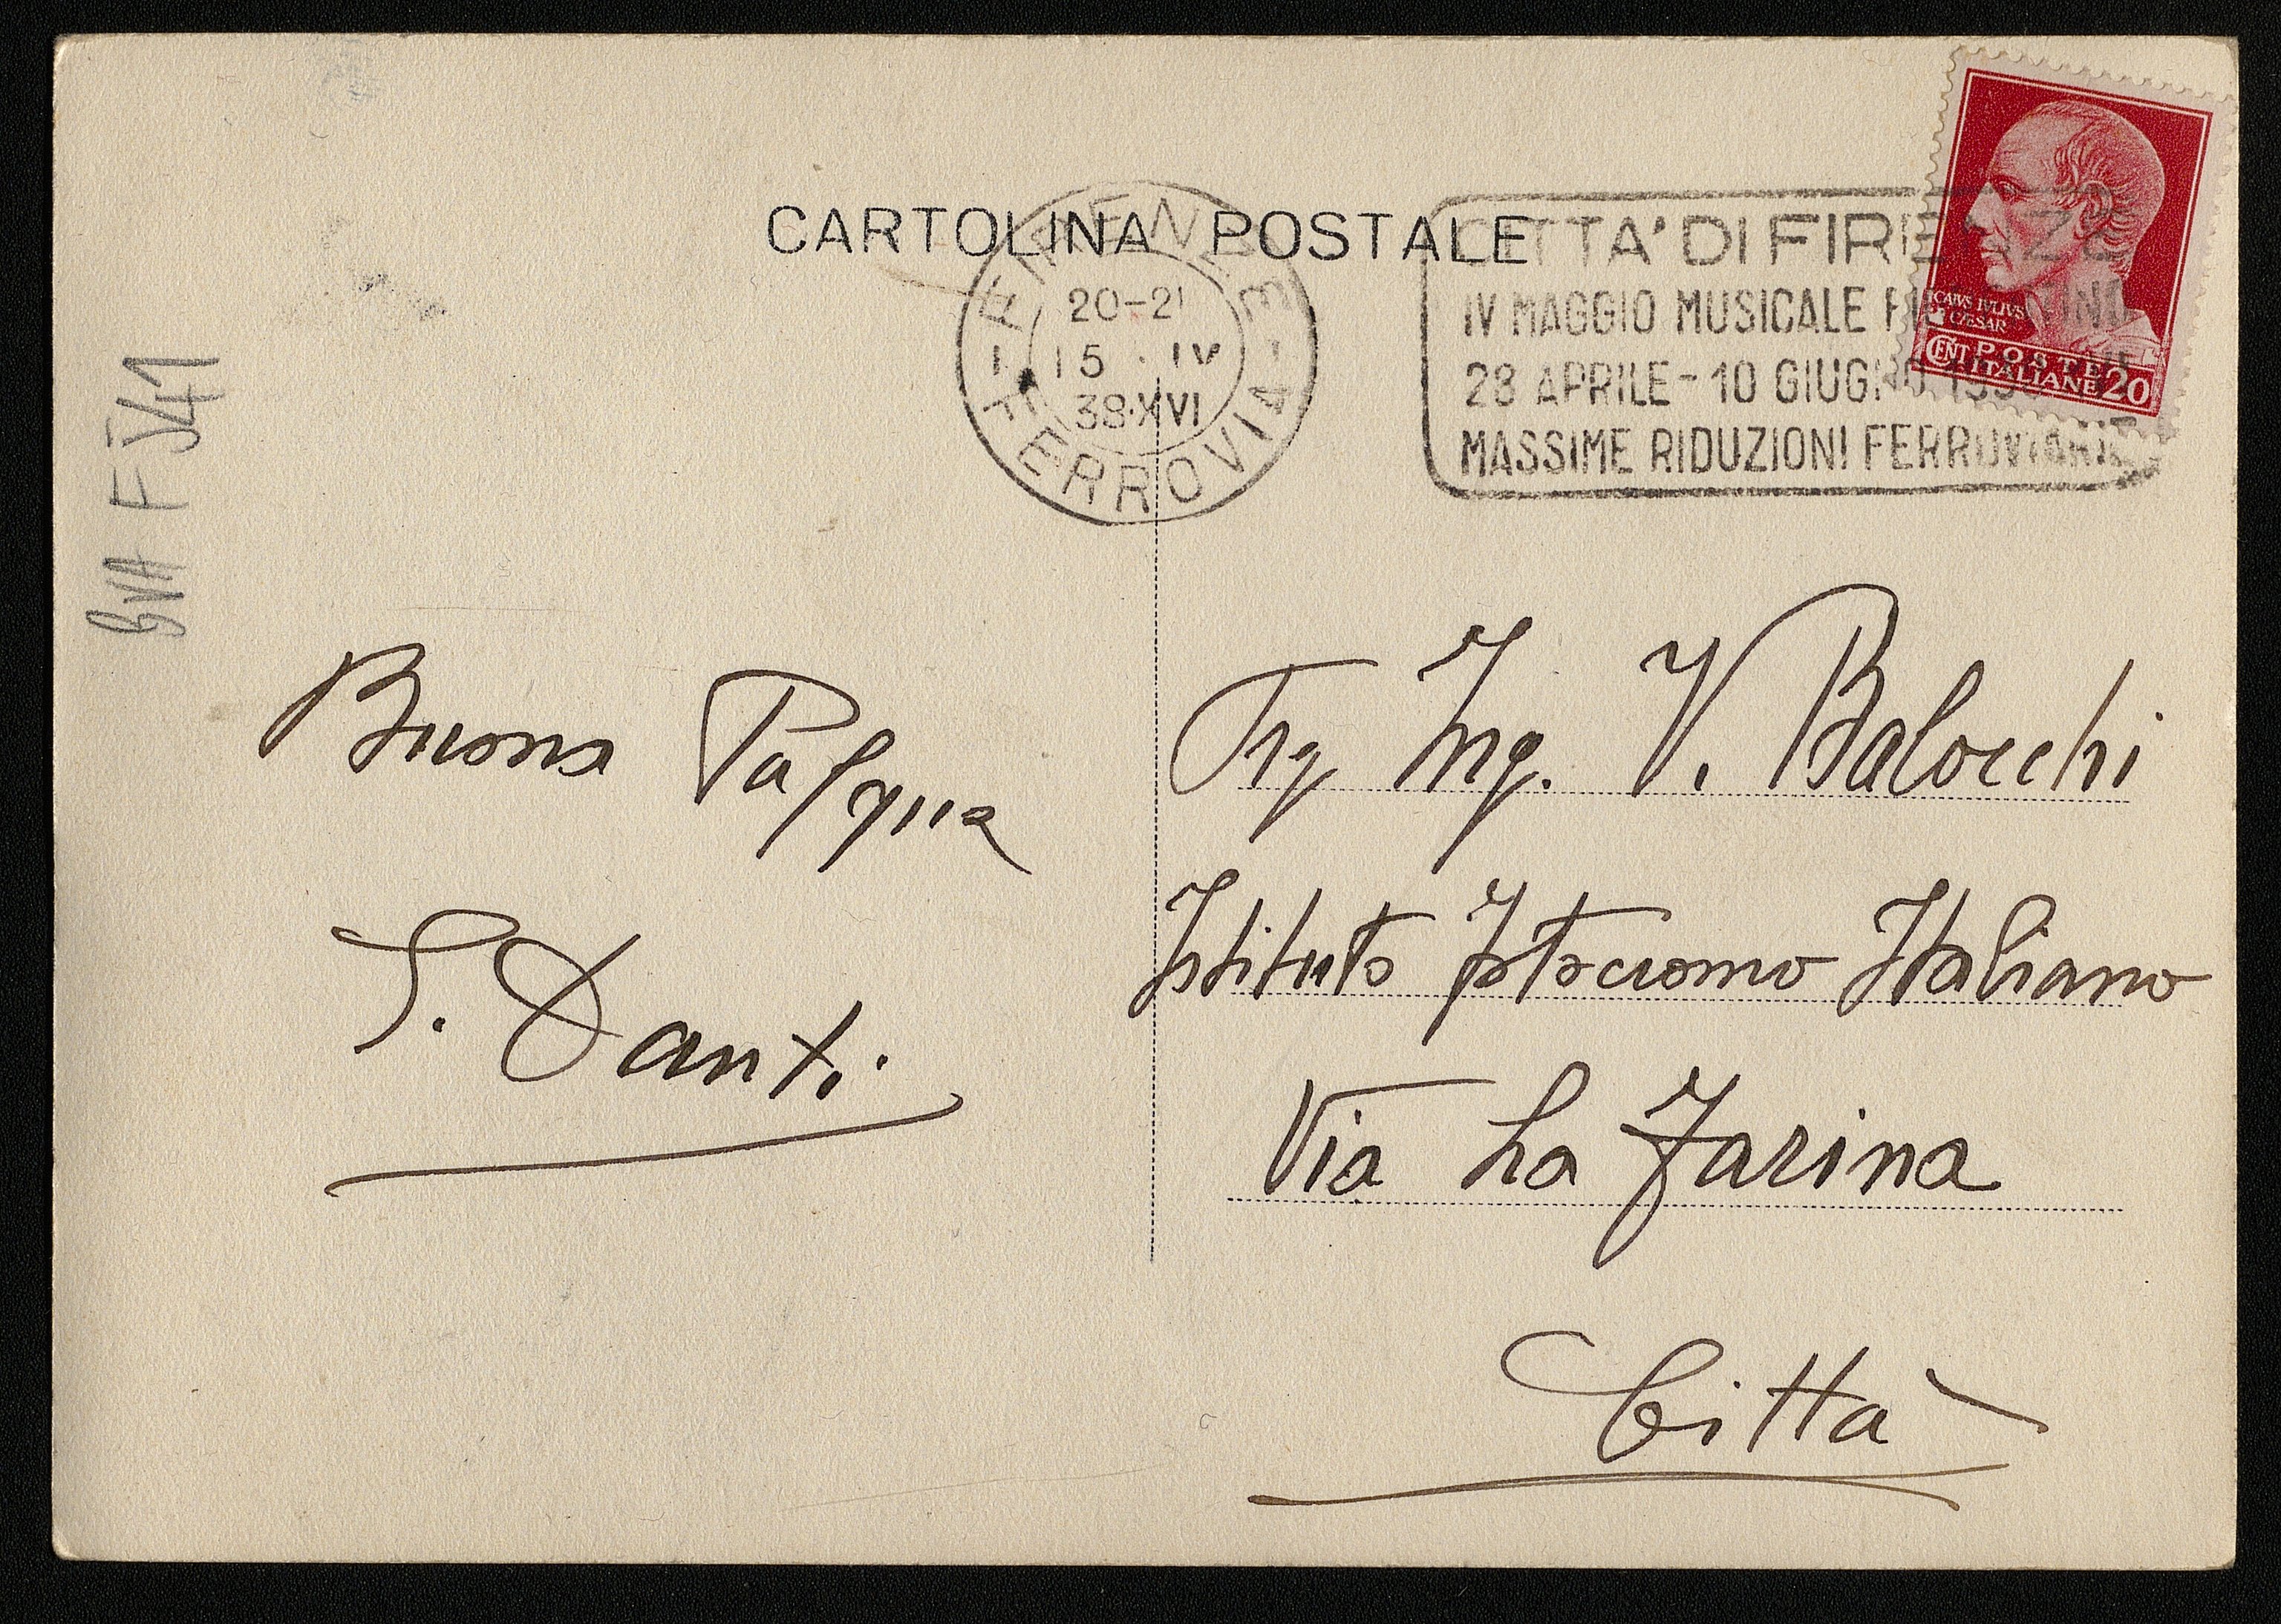 CARTOLINA POSTALE
FIRENZE
20-21
15·IV
38·XVI
FERROVIA
CITTA' DI FIRENZE
IV MAGGIO MUSICALE FIORENTINO
28 APRILE - 10 GIUGNO
MASSIME RIDUZIONI FERROVIARIE
CAIVS IVLIVS
CAESAR
CENT POSTE 20
ITALIANE
Buona Pasqua
Danti
Ing. V. Balocchi
Istituto Fotocromo Italiano
Via La Farina
Città